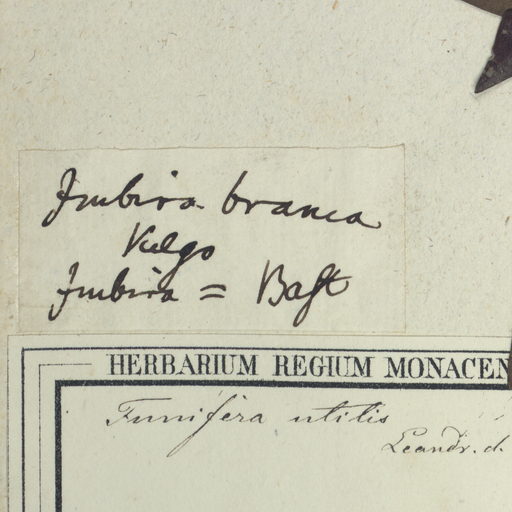 Imbira branca
Vulgo
Imbira = Bast
HERBARIUM REGIUM MONACEN
Funifera utilis
Leandr. d.